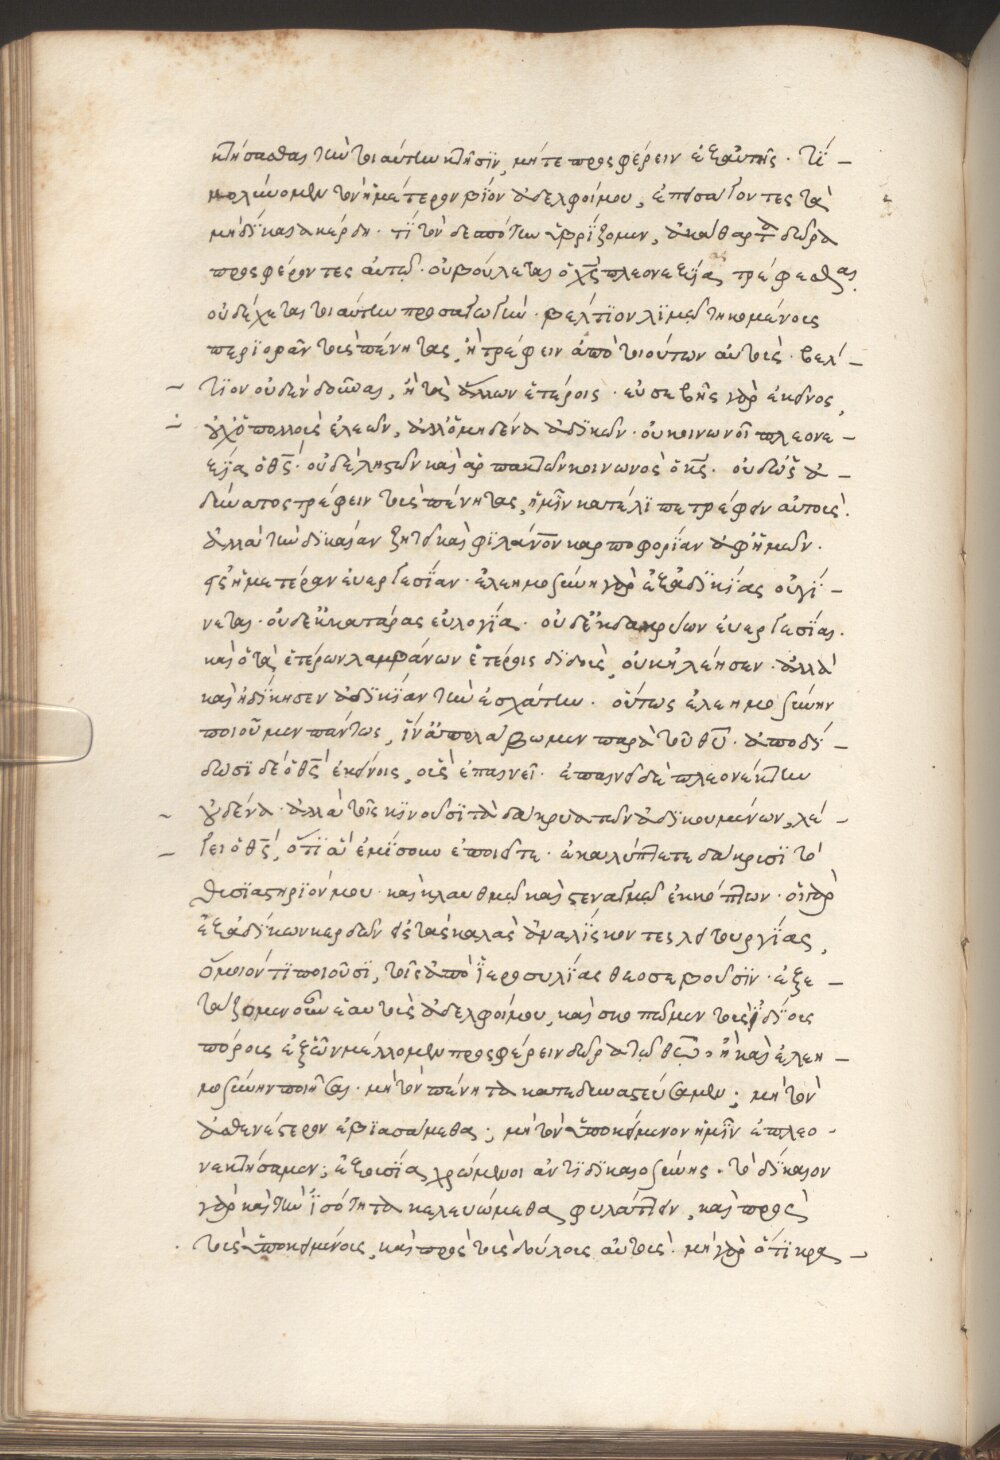 κτήσασθαι τὴν τοιαύτην κτῆσϊν, μήτε προσφέρειν ἐξ αὐτῆς· τί –
μολύνομεν τὸν ἡμέτερον βϊόν ἀδελφοί μου, ἐπεισάγοντες τὰ
μὴ δίκαια κέρδη· τί τὸν δεσπότην ὑβρίζομεν, ἀκάθαρτα δῶρα
προσφέροντες αὐτῷ· οὐ βούλεται ὁ χς πλεονεξίαις τρέφεσθαι.
οὐ δέχεται τοιαύτην προσαγωγήν· βέλτϊον λϊμῷ τηκομένους
περϊορᾶν τοὺς πένητας, ἢ τρέφειν ἀπὸ τοιούτων αὐτούς· βέλ –
τϊον οὐδὲν δοῦναι, ἢ τὰ ἄλλων ἑτέροις· εὐσεβὴς γὰρ ἐκεῖνος,
οὐχ ὁ πολλοὺς ἐλεῶν, ἀλλ' ὁ μηδένα ἀδϊκῶν· οὐ κοινωνοῖ πλεονε –
ξίας ὁ θς· οὐδὲ λῃστῶν καὶ ἁρπακτῶν κοινωνὸς ὁ κς· οὐ δι' ὃ ἀ –
δύνατος τρέφειν τοὺς πένητας, ἡμῖν κατέλϊπε τρέφειν αὐτούς.
ἀλλὰ τὴν δϊκαίαν ζητεῖ καὶ φϊλάνον καρποφορίαν ἀφ' ἡμῶν.
εἰς ἡμετέραν ἐυεργεσίαν· ἐλεημοσύνη γὰρ ἐξ ἀδϊκίας οὐ γί –
νεται· οὐδὲ ἐκ κατάρας εὐλογία· οὐδὲ ἐκ δακρύων ἐυεργεσίας.
καὶ ὁ τὰ ἑτέρων λαμβάνων ἑτέροις δϊδοὺς, οὐκ ἠλέησεν· ἀλλὰ
καὶ ἠδίκησεν ἀδϊκίαν τὴν ἐσχάτην· οὕτως ἐλεημοσύνην
ποιοῦμεν πάντως, ἵνα ἀπολάβωμεν παρὰ τοῦ θυ· ἀποδί –
δωσϊ δὲ ὁ θς ἐκείνοις, οὓς ἐπαινεῖ· ἐπαινεῖ δὲ πλεονέκτην
οὐδένα· ἀλλὰ τοῖς κϊνοῦσϊ τὰ δάκρυα τῶν ἀδϊκουμένων, λέ –
γει ὁ θς, ὅτϊ ἃ ἐμίσουν ἐποιεῖτε· ἐκαλύπτετε δάκρυσϊ τὸ
θυσϊαστήρϊόν μου· καὶ κλαυθμῷ καὶ στεναγμῷ ἐκ κόπτων· οἱ γὰρ
ἐξ ἀδίκων κερδῶν εἰς τὰς καλὰς ἀναλίσκοντες λειτουργίας,
ὅμοιόν τϊ ποιοῦσϊ, τοῖς ἀπὸ ἱεροσυλίας θεοσεβοῦσϊν· ἐξε –
τάζομεν οὖν ἑαυτοὺς ἀδελφοί μου, καὶ σκοπῶμεν τοὺς ἰδίους
πόρους ἐξ ὧν μέλλομεν προσφέρειν δῶρα τῷ θεῷ, ἢ καὶ ἐλεη –
μοσύνην ποιῆσαι· μὴ τὸν πένητα κατεδυναστεύσαμεν; μὴ τὸν
ἀσθενέστερον ἐβϊασάμεθα; μὴ τὸν ὑποκείμενον ἡμῖν ἐπλεο –
νεκτήσαμεν; ἐξουσίᾳ χρώμενοι ἀντὶ δϊκαιοσύνης· τὸ δίκαιον
γὰρ καὶ τὴν ἰσότητα κελευόμεθα φυλάττειν, καὶ πρὸς
τοὺς ὑποκειμένους, καὶ πρὸς τοὺς δούλους αὐτούς· μὴ γὰρ ὅτϊ κρα –